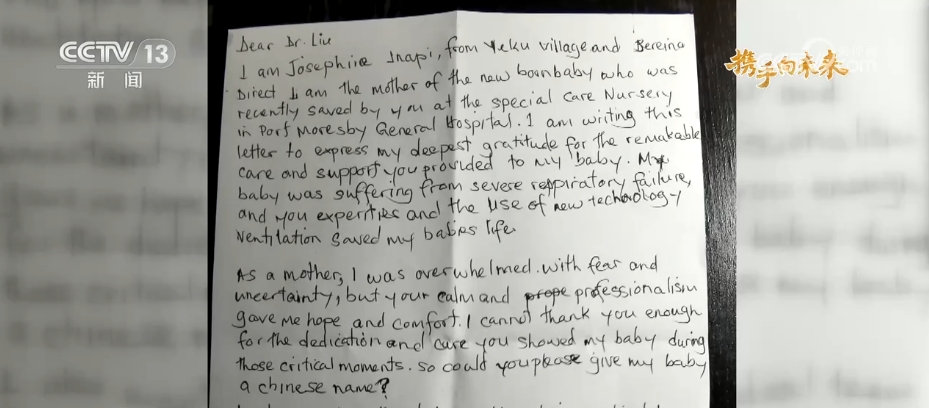 CCTV 13
新闻
携手向未来
Dear Dr. Liu
I am Josephine Inapi, from Yeku village and Bereina
Direct I am the mother of the new bornbaby who was
recently saved by you at the special care Nursery
in Port Moresby General Hospital. I am writing this
letter to express my deepest gratitude for the remakable
care and support you provided to my baby. My
baby was suffering from severe respiratory failure,
and you experities and the use of new technology
ventilation saved my babies life.
As a mother, I was overwhelmed with fear and
uncertainty, but your calm and prope professionalism
gave me hope and comfort. I cannot thank you enough
for the dedication and care you showed my baby during
those critical moments. so could you please give my baby
a chinese name?